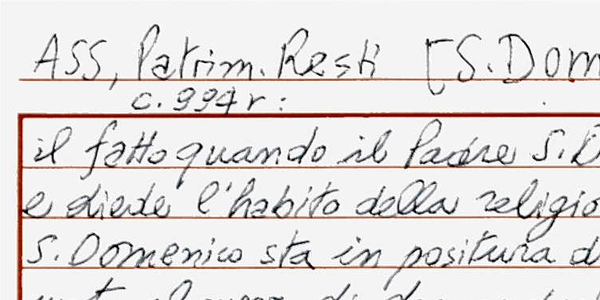 ASS, Patrim. Resti [S. Dom
c. 994r:
il fatto quando il Padre S. D
e diede l'habito della religio
S. Domenico sta in positura d